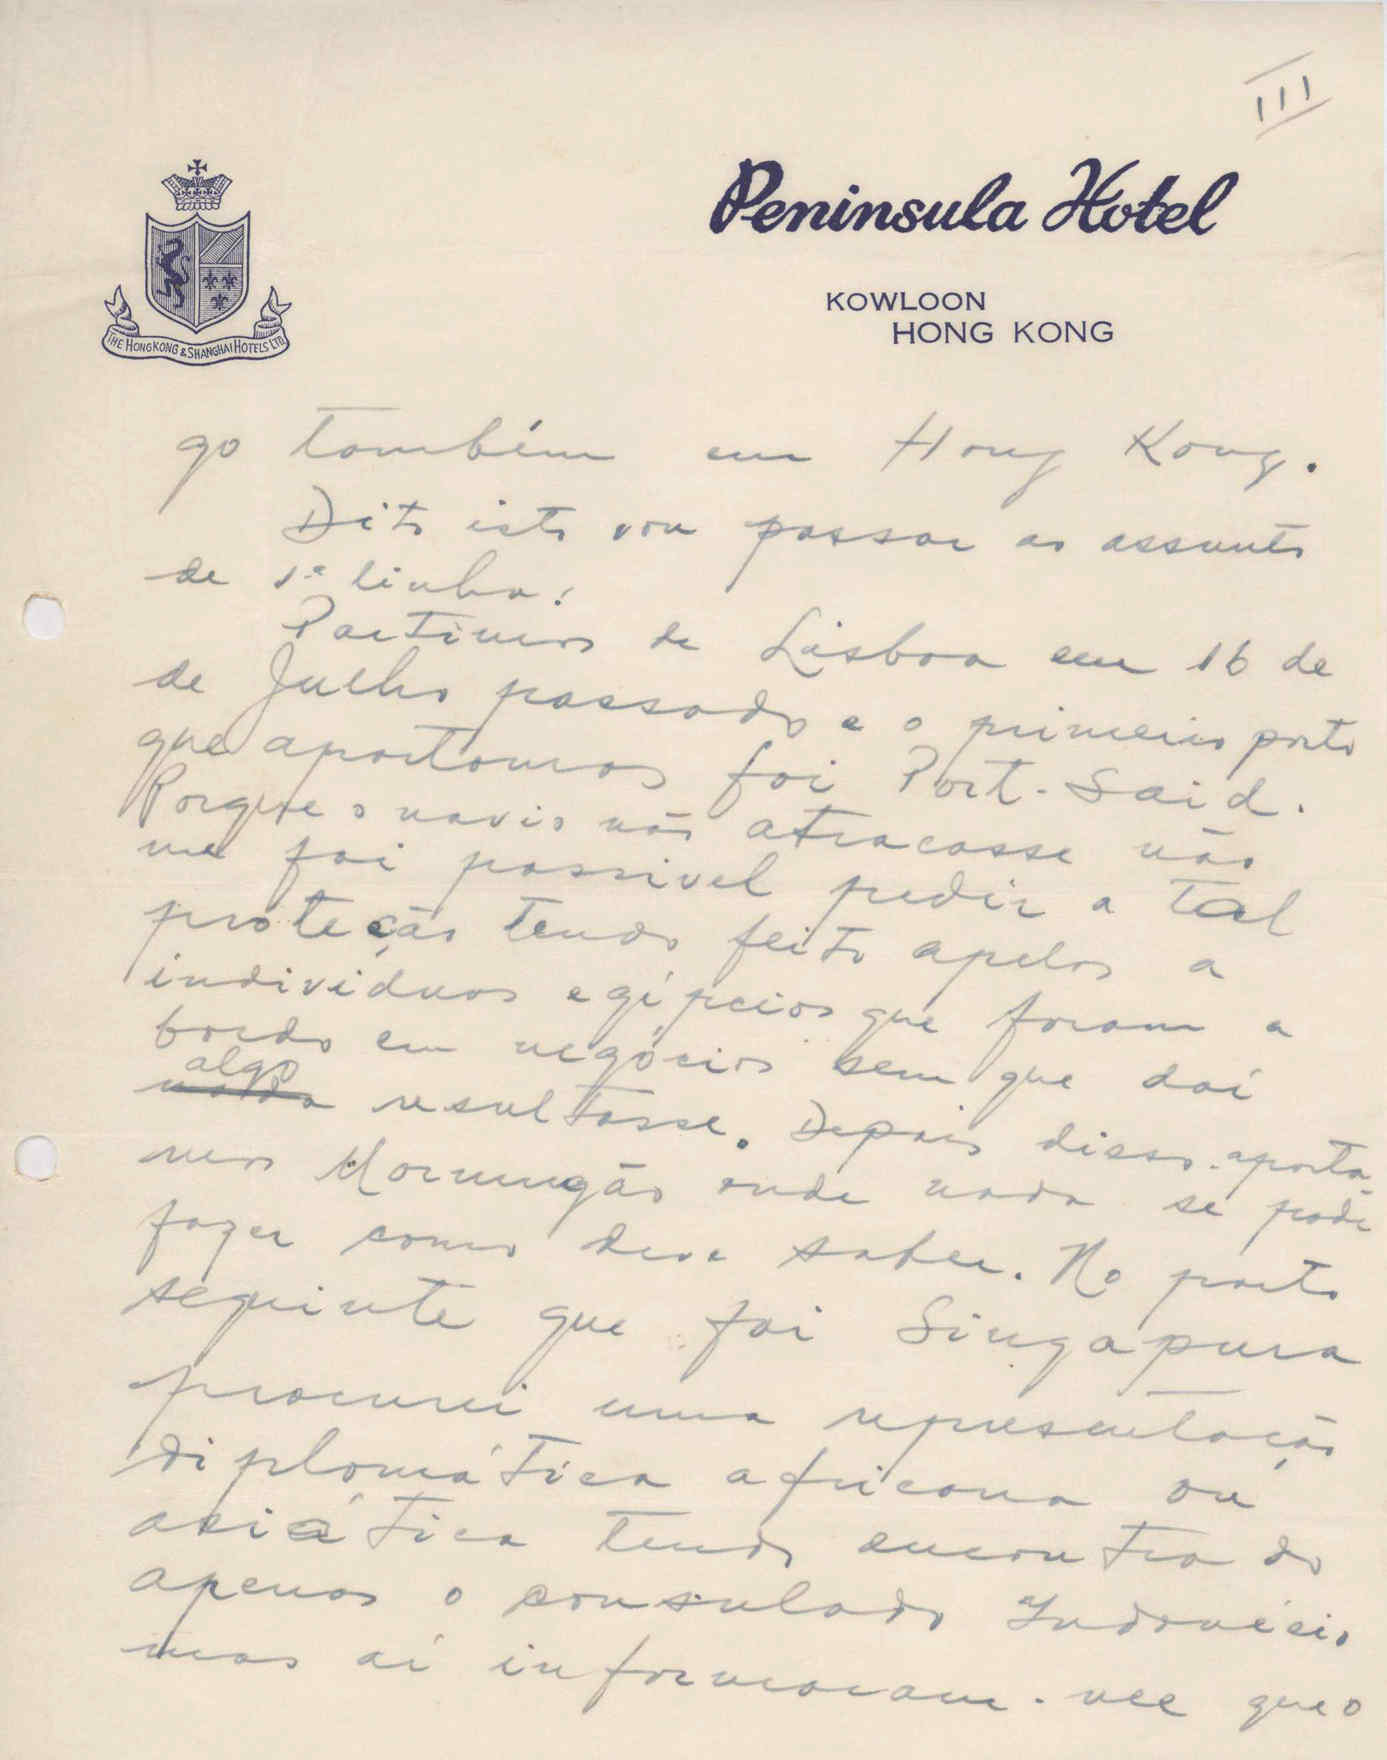 III
Peninsula Hotel
KOWLOON
HONG KONG
THE HONGKONG & SHANGHAI HOTELS LTD
go também em Hong Kong.
Dito isto vou passar ao assunto
de 1ª linha:
Partimos de Lisboa em 16 de
de Julho passado e o primeiro porto
que aportamos foi Port-Said.
Porque o navio não atracasse não
me foi possivel pedir a tal
proteção tendo feito apelos a
individuos egípcios que foram a
bordo em negócios sem que daí
algo
nada resultasse. Depois disso aporta-
mos Mormugão onde nada se pode
fazer como deve saber. No porto
seguinte que foi Singapura
procurei uma representação
diplomática africana ou
asiática tendo encontrado
apenas o consulado Indonésio
mas aí informaram-me que o